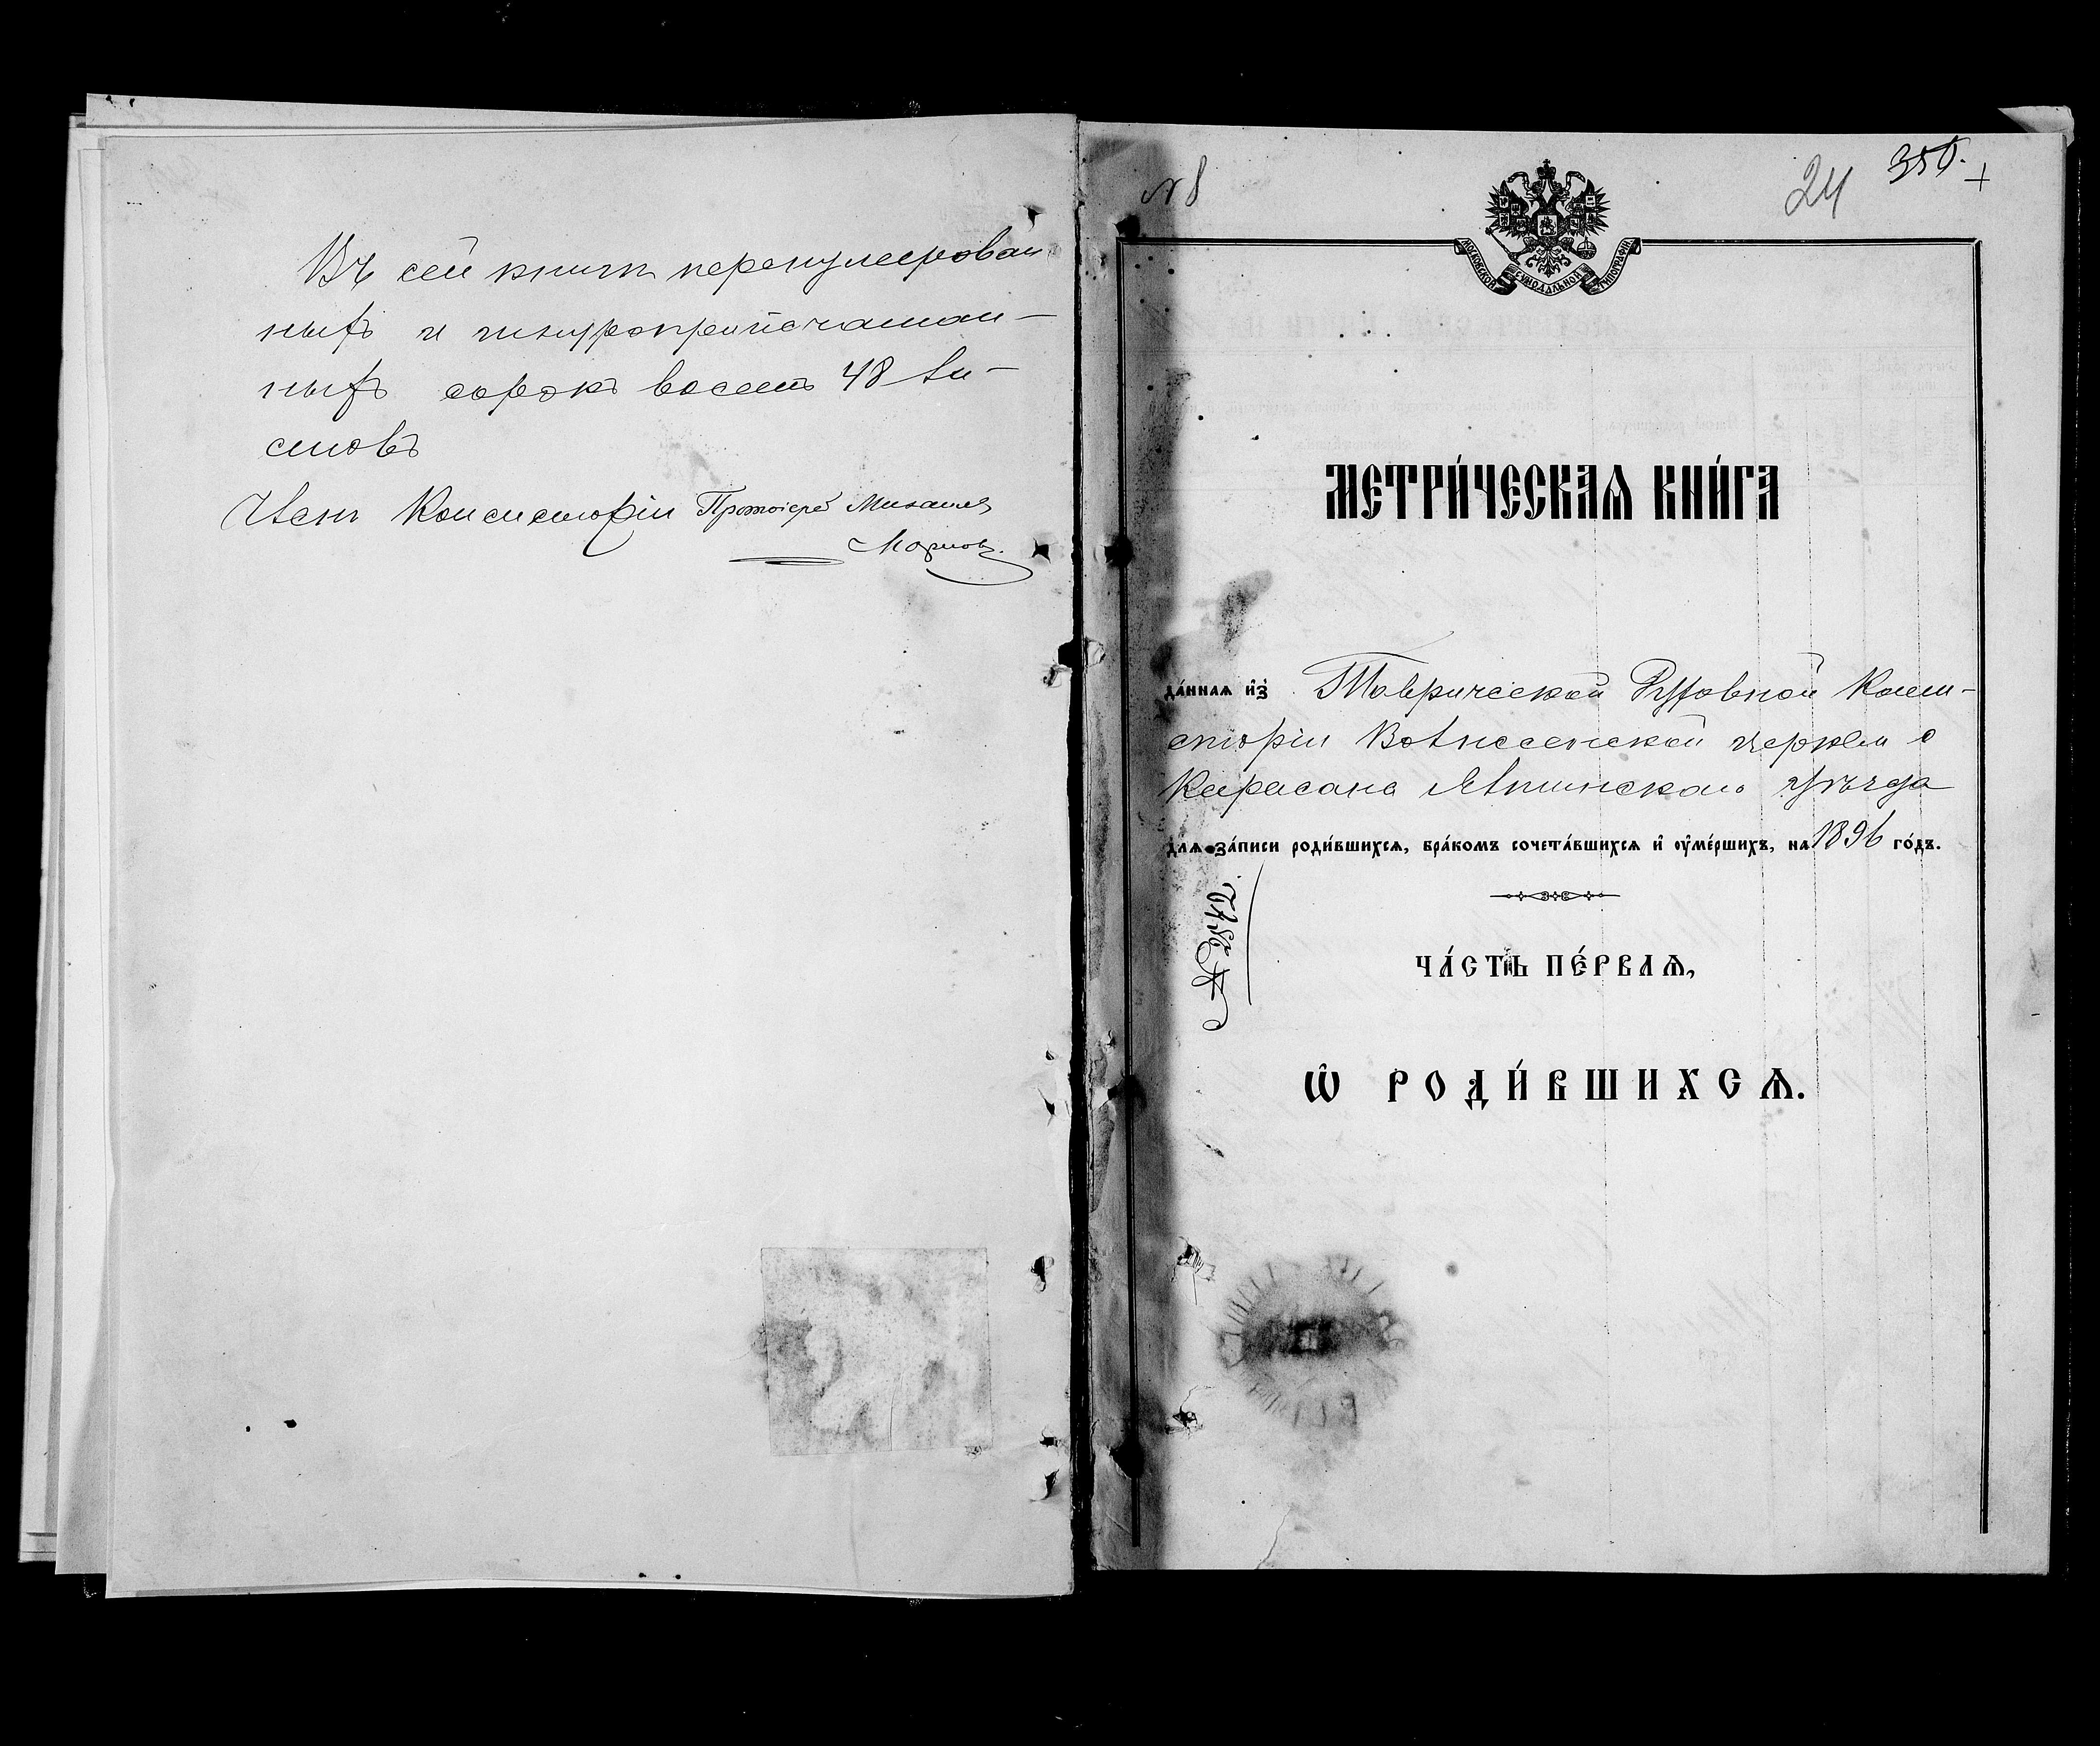 Въ сей книгѣ перенумерован
ныхъ и шнуроприпечатан-
ныхъ сорокъ восемь 48 ли-
стовъ
Членъ Консисторіи Протоіерей Михаилъ
№ 8
24
350.
МОСКОВСКОЙ СѴНОДАЛЬНОЙ ТИПОГРАФІИ
МЕТРИ́ЧЕСКАѦ КНИ́ГА
да́ннаѧ и҆з̾ Таврической Духовной Конси-
сторіи Вознесенской церкви с
Карасана Ялтинскаго уѣзда
длѧ за́писи роди́вшихсѧ, бра́комъ сочета́вшихсѧ и҆ ᲂу҆ме́ршихъ, на 1896 го́дъ.
ЧА́СТЬ ПЕ́РВАѦ,
Ѡ҆ РОДИ́ВШИХСѦ.